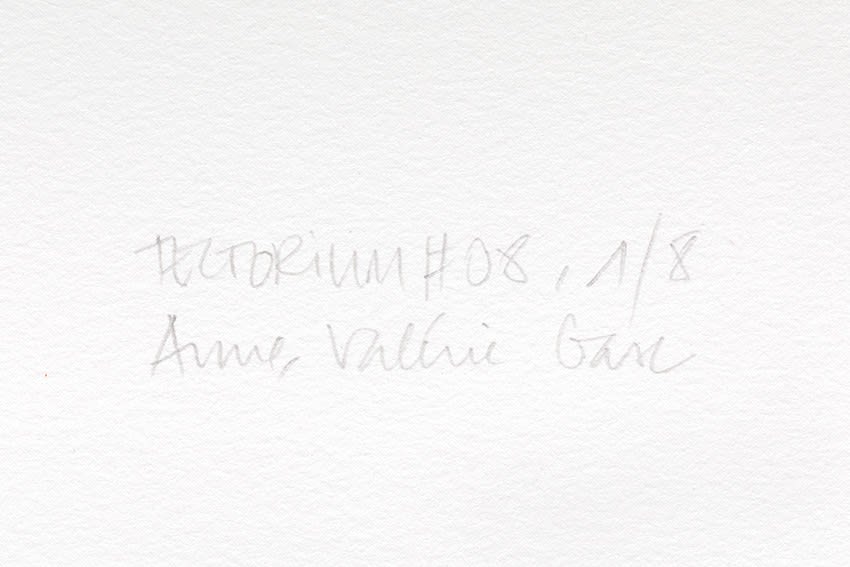 TECTORIUM #08, 1/8
Anne, Valérie Gasc